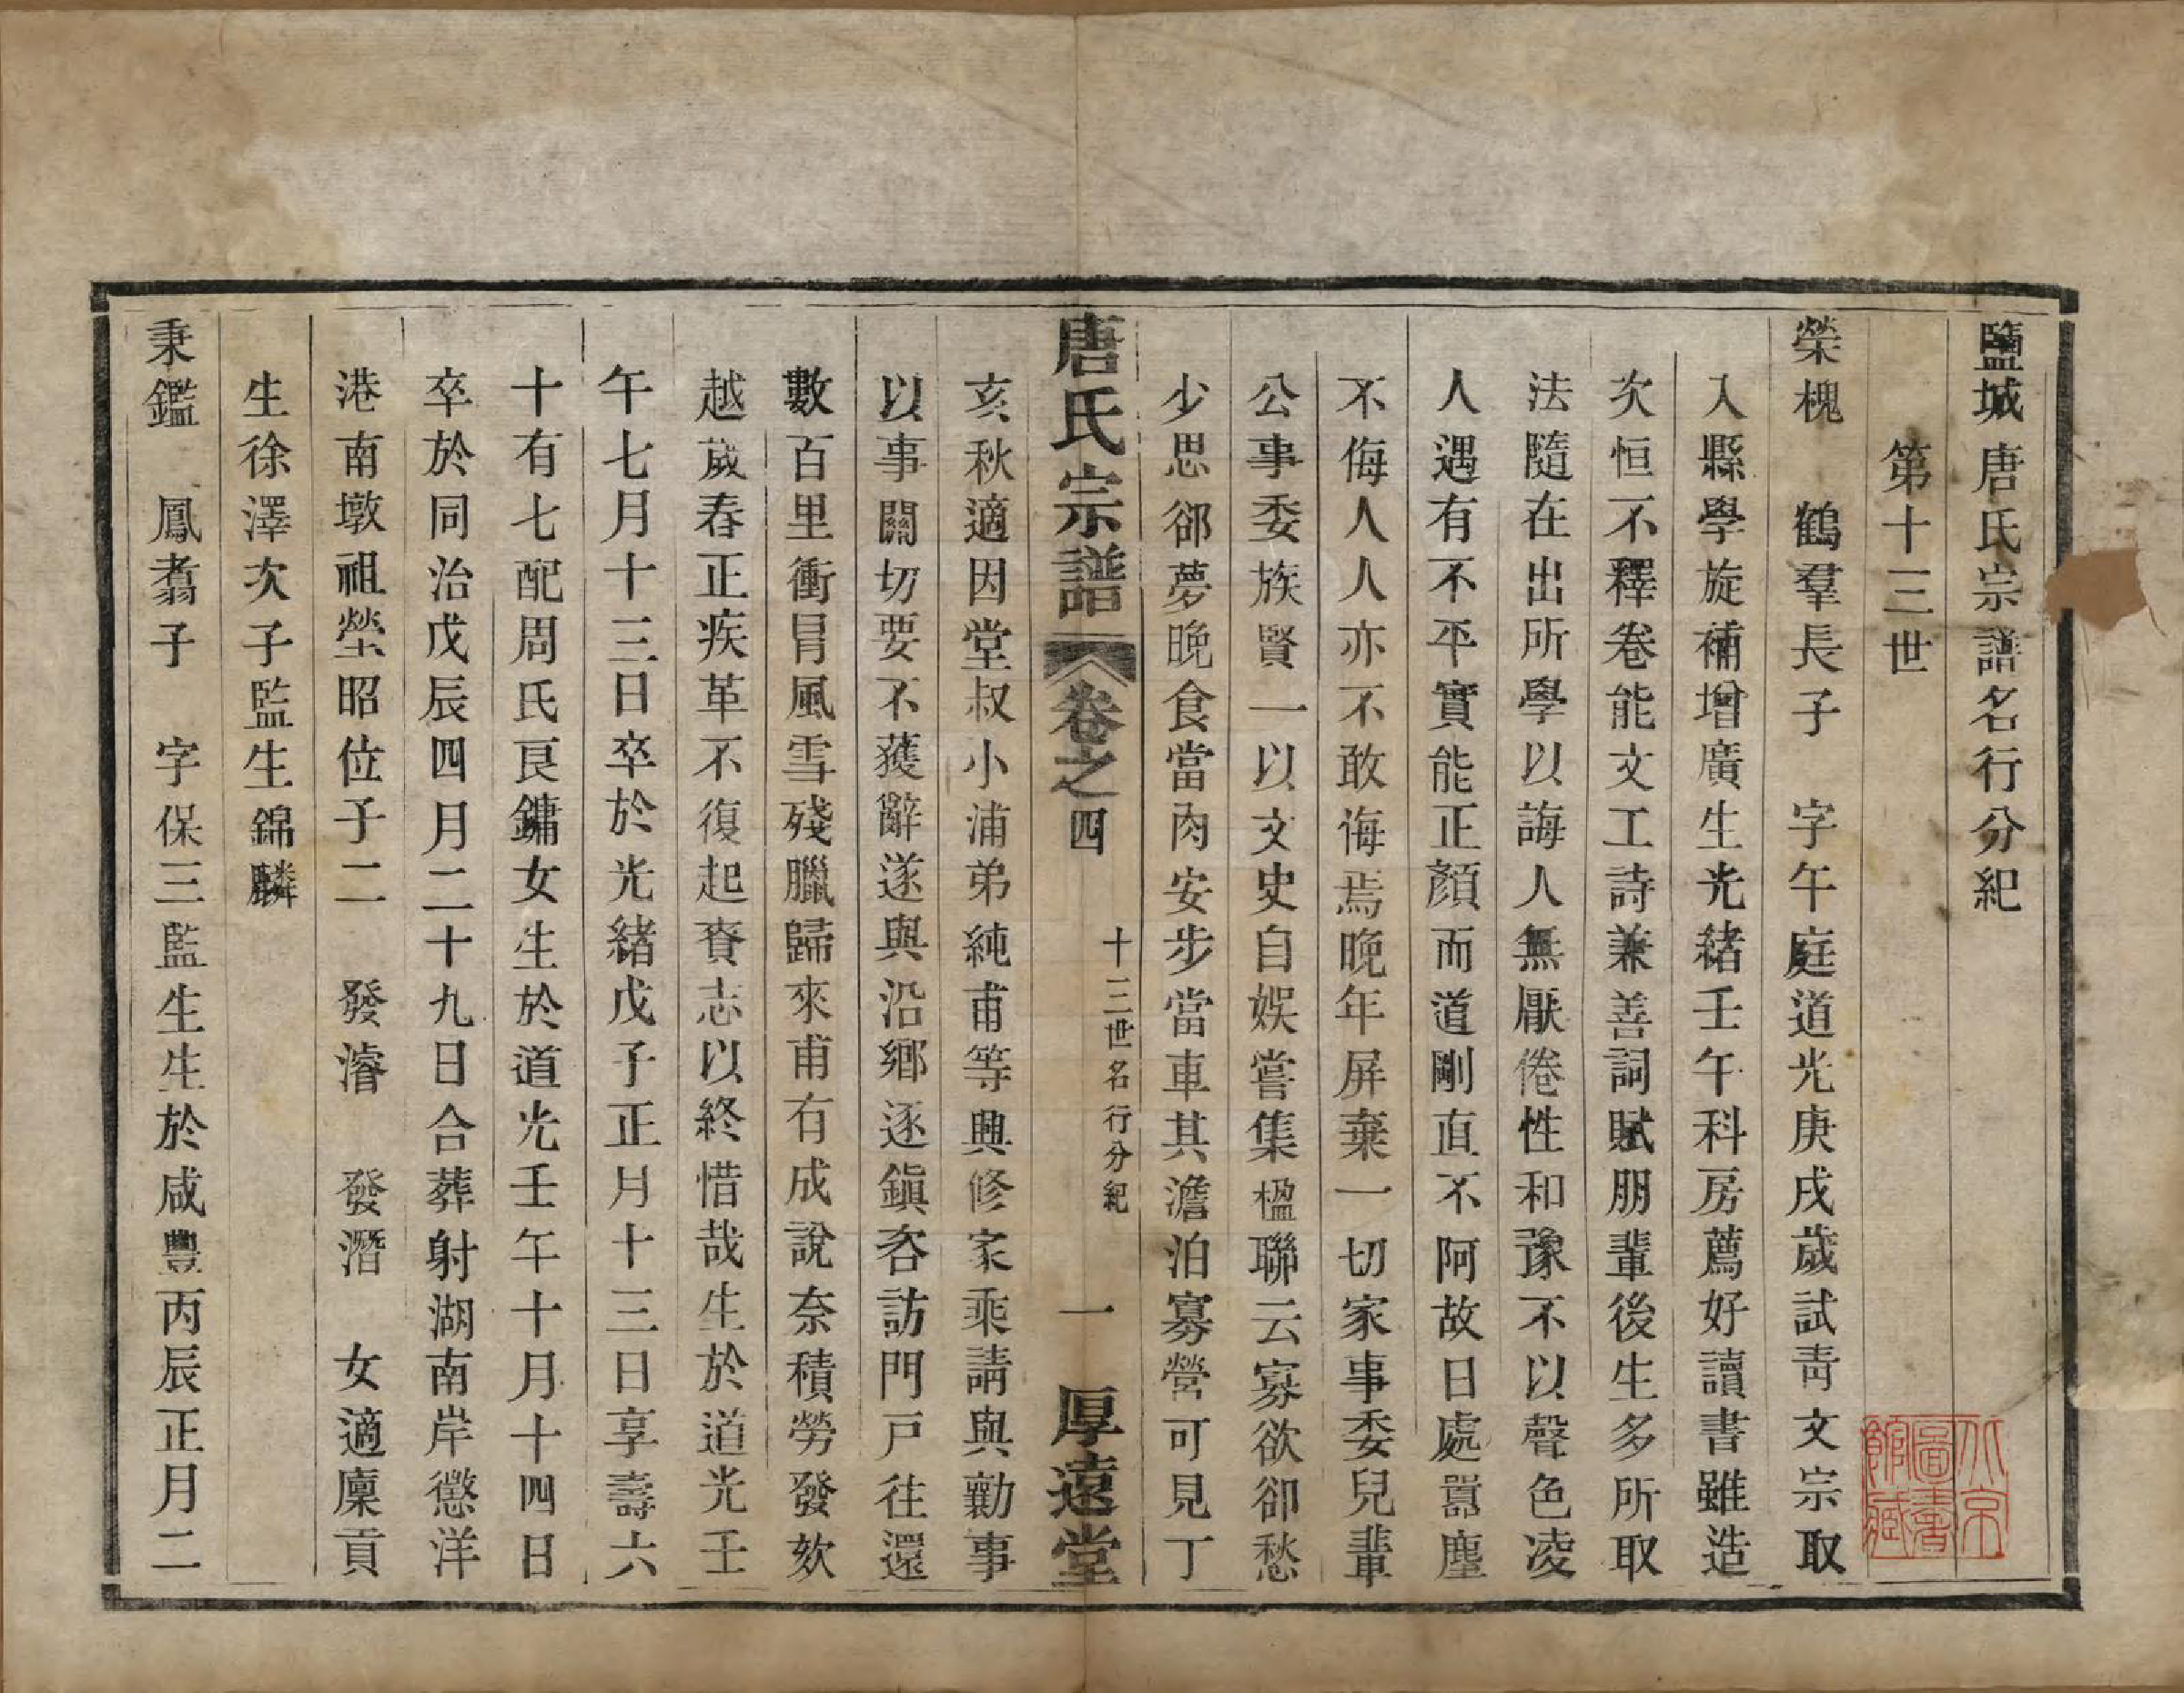 鹽城唐氏宗譜名行分紀
第十三世
榮槐　鶴羣長子　字午庭道光庚戌歲試青文宗取
入縣學旋補增廣生光緒壬午科房薦好讀書雖造
次恒不釋卷能文工詩兼善詞賦朋輩後生多所取
法隨在出所學以誨人無厭倦性和豫不以聲色凌
人遇有不平實能正顏而道剛直不阿故日處囂塵
不侮人人亦不敢侮焉晚年屏棄一切家事委兒輩
公事委族賢一以文史自娛嘗集楹聯云寡欲卻愁
少思卻夢晚食當肉安步當車其澹泊寡營可見丁
唐氏宗譜
卷之四
十三世名行分紀
一
厚遠堂
亥秋適因堂叔小浦弟純甫等興修家乘請與勷事
以事關切要不獲辭遂與沿鄉逐鎮咨訪門戶往還
數百里衝冒風雪殘臘歸來甫有成說奈積勞發欬
越歲春正疾革不復起賫志以終惜哉生於道光壬
午七月十三日卒於光緒戊子正月十三日享壽六
十有七配周氏艮鏞女生於道光壬午十月十四日
卒於同治戊辰四月二十九日合葬射湖南岸懲洋
港南墩祖塋昭位子二　發濬　發潛　女適廩貢
生徐澤次子監生錦麟
秉鑑　鳳翥子　字保三監生生於咸豐丙辰正月二
北京
圖書
館藏